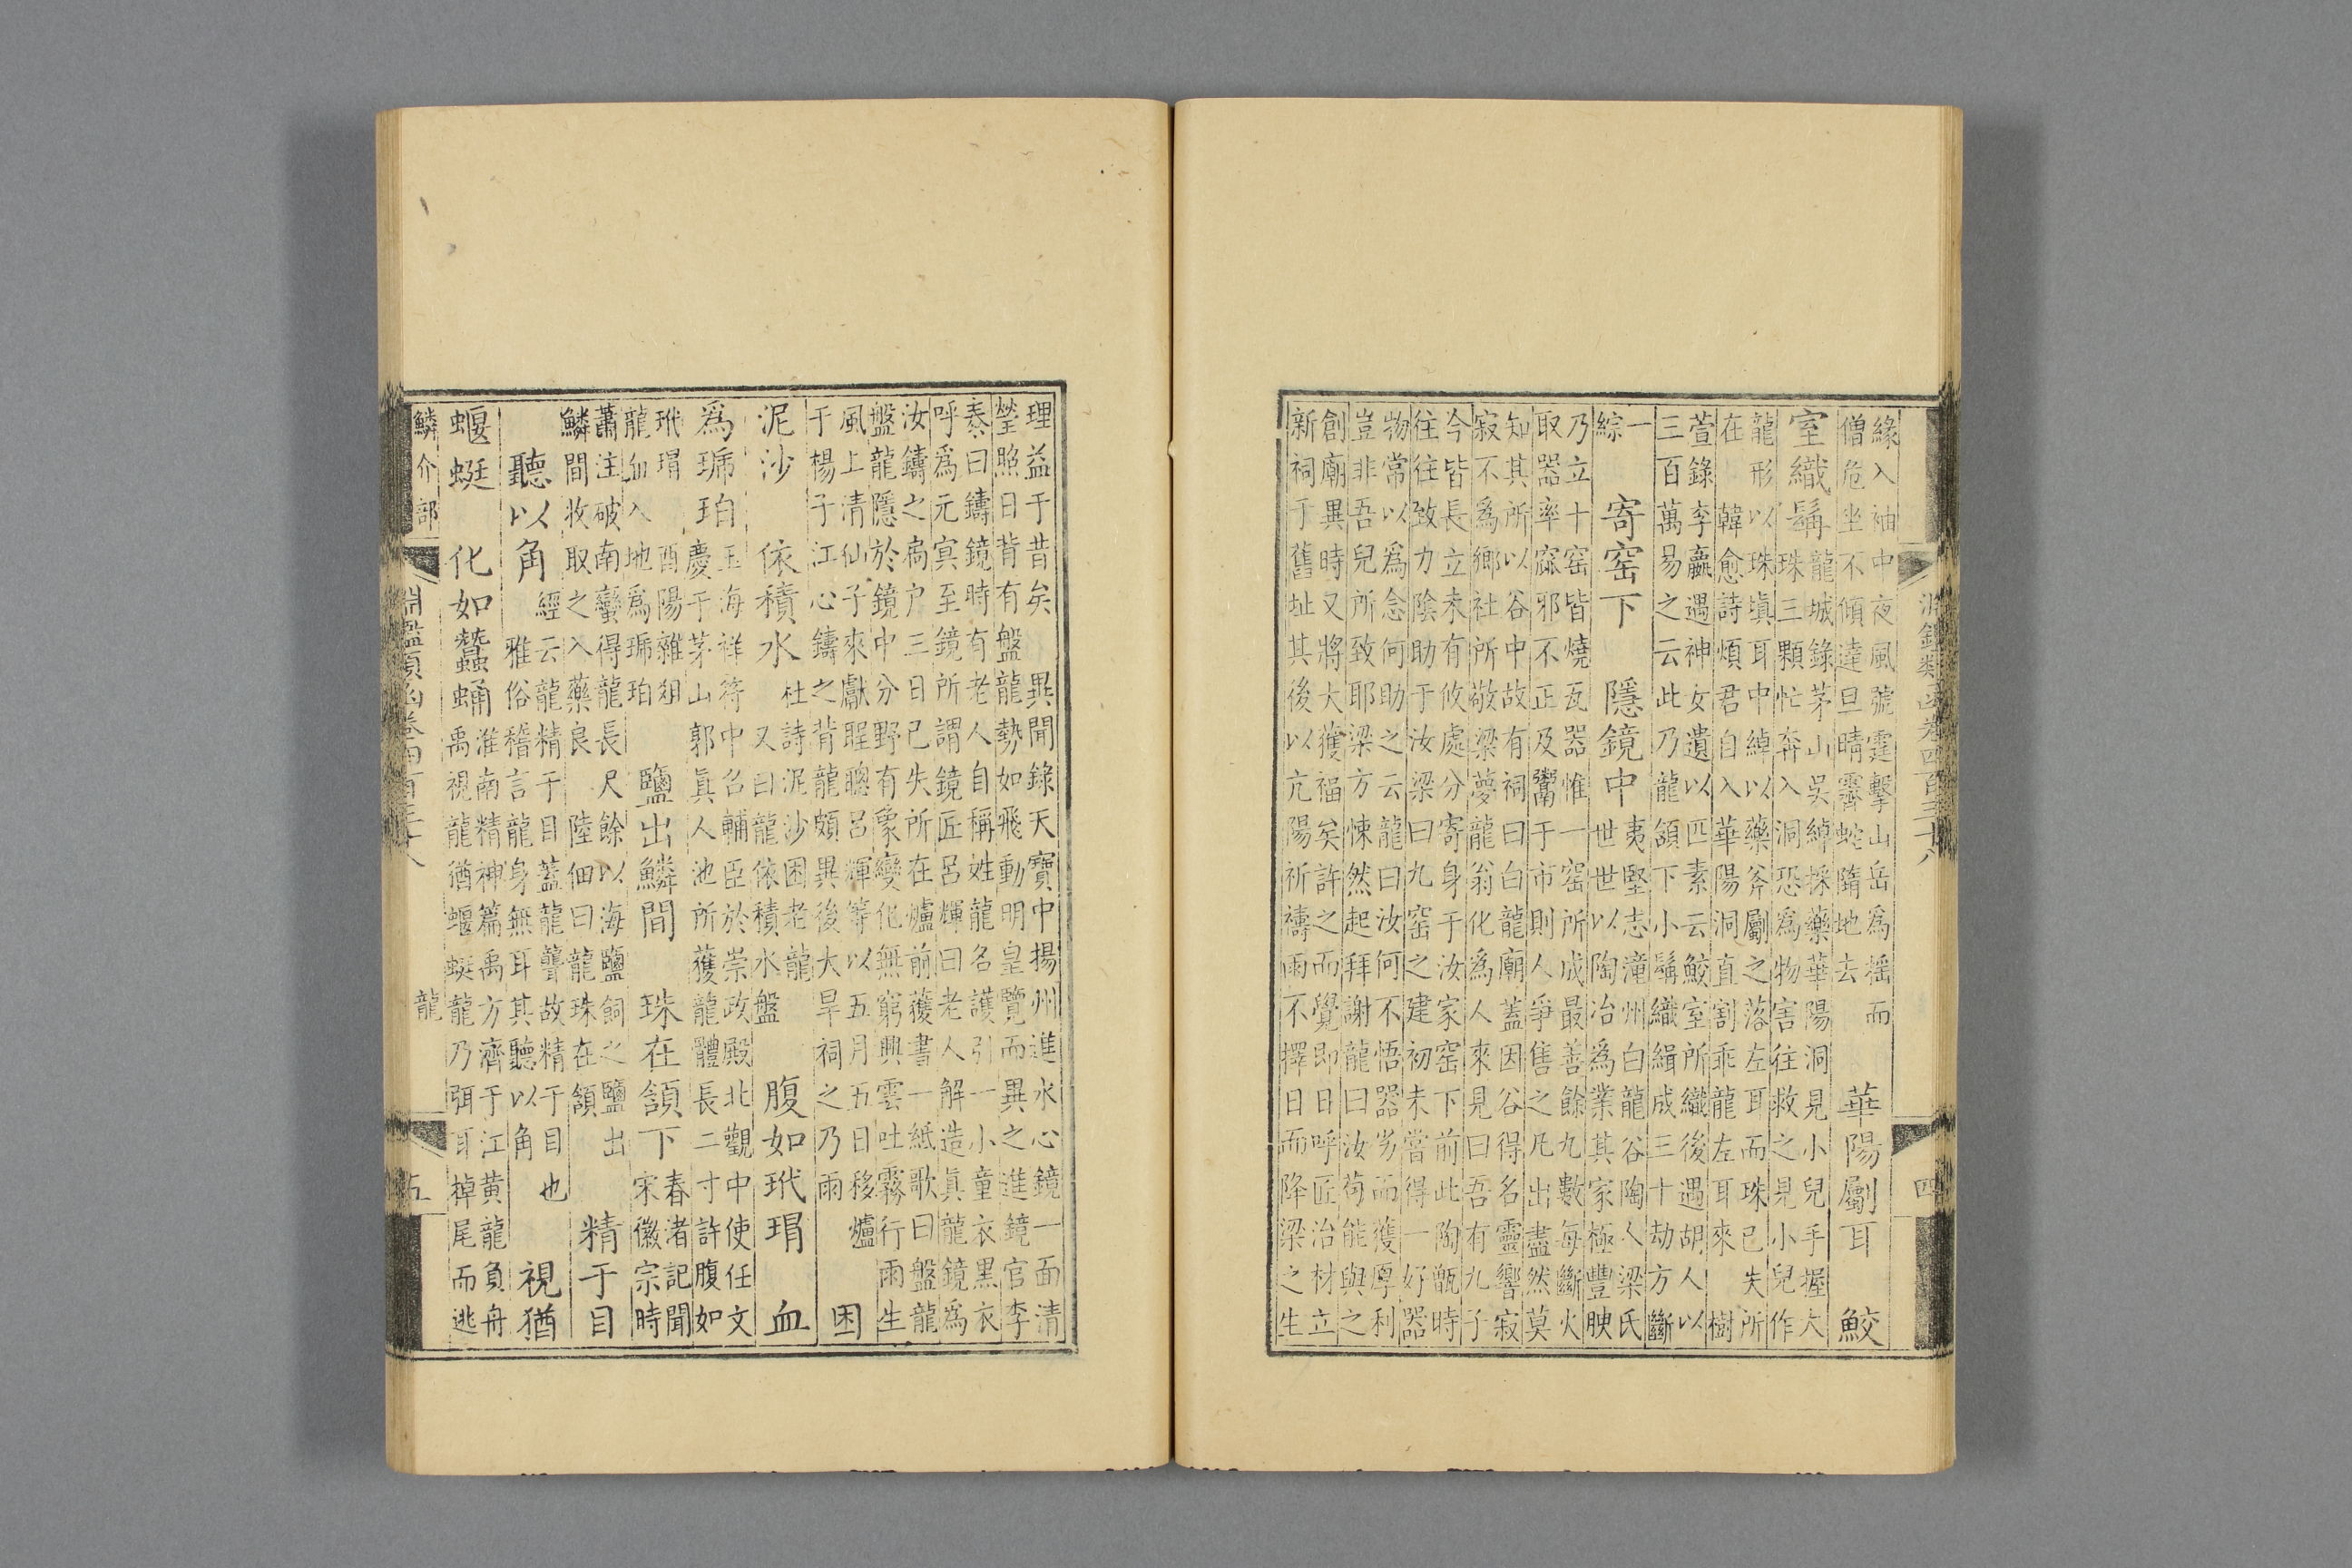 淵鑑類函卷四百三十八 四
緣入袖中夜風號霆擊山岳爲搖而
僧危坐不傾達旦晴霽蛇隋地去
華陽㔉耳 鮫
室織髯
龍城錄茅山吳綽採藥華陽洞見小兒手握大
珠三顆忙奔入洞恐爲物害往救之見小兒作
龍形以珠塡耳中綽以藥斧㔉之落左耳而珠已失所
在 韓愈詩煩君自入華陽洞直割乖龍左耳來 樹
萱錄李驘遇神女遺以匹素云鮫室所織後遇胡人以
三百萬易之云此乃龍頷下小髯織緝成三十劫方斷
一
綜
寄窑下 隱鏡中
夷堅志滝州白龍谷陶人梁氏
世世以陶冶爲業其家極豐腴
乃立十窑皆燒瓦器惟一窑所成最善餘九數每斷火
取器率窳邪不正及鬻于市則人爭售之凡出盡然莫
知其所以谷中故有祠曰白龍廟蓋因谷得名靈響寂
寂不爲鄉社所敬梁夢龍翁化爲人來見曰吾有九子
今皆長立未有攸處分寄身于汝家窑下前此陶甑時
往往致力陰助于汝梁曰九窑之建初未嘗得一好器
物常以爲念何助之云龍曰汝何不悟器劣而獲厚利
豈非吾兒所致耶梁方悚然起拜謝龍曰汝苟能與之
創廟異時又將大獲福矣許之而覺即日呼匠治材立
新祠于舊址其後以亢陽祈禱雨不擇日而降梁之生
理益于昔矣 異聞錄天寶中揚州進水心鏡一面清
瑩照日背有盤龍勢如飛動明皇覽而異之進鏡官李
泰曰鑄鏡時有老人自稱姓龍名護引一小童衣黑衣
呼爲元冥至鏡所謂鏡匠呂輝曰老人解造眞龍鏡爲
汝鑄之扃户三日已失所在爐前獲書一紙歌曰盤龍
盤龍隱於鏡中分野有象變化無窮興雲吐霧行雨生
風上清仙子來獻聖聰呂輝等以五月五日移爐
于楊子江心鑄之背龍頗異後大旱祠之乃雨
困
泥沙 依積水
杜詩泥沙困老龍
又曰龍依積水盤
腹如玳瑁 血
爲琥珀
玉海祥符中召輔臣於崇政殿北觀中使任文
慶于茅山郭眞人池所獲龍體長二寸許腹如
玳瑁 酉陽雜俎
龍血入地爲琥珀
鹽出鱗間 珠在頷下
春渚記聞
宋徽宗時
蕭注破南蠻得龍長尺餘以海鹽飼之鹽出
鱗間收取之入藥良 陸佃曰龍珠在頷
精于目
聽以角
經云龍精于目蓋龍聾故精于目也
雅俗稽言龍身無耳其聽以角
視猶
蝘蜓 化如蠶蛹
淮南精神篇禹方濟于江黄龍負舟
禹視龍猶蝘蜓龍乃弭耳掉尾而逃
鱗介部 淵鑑類函卷四百三十八 龍 五